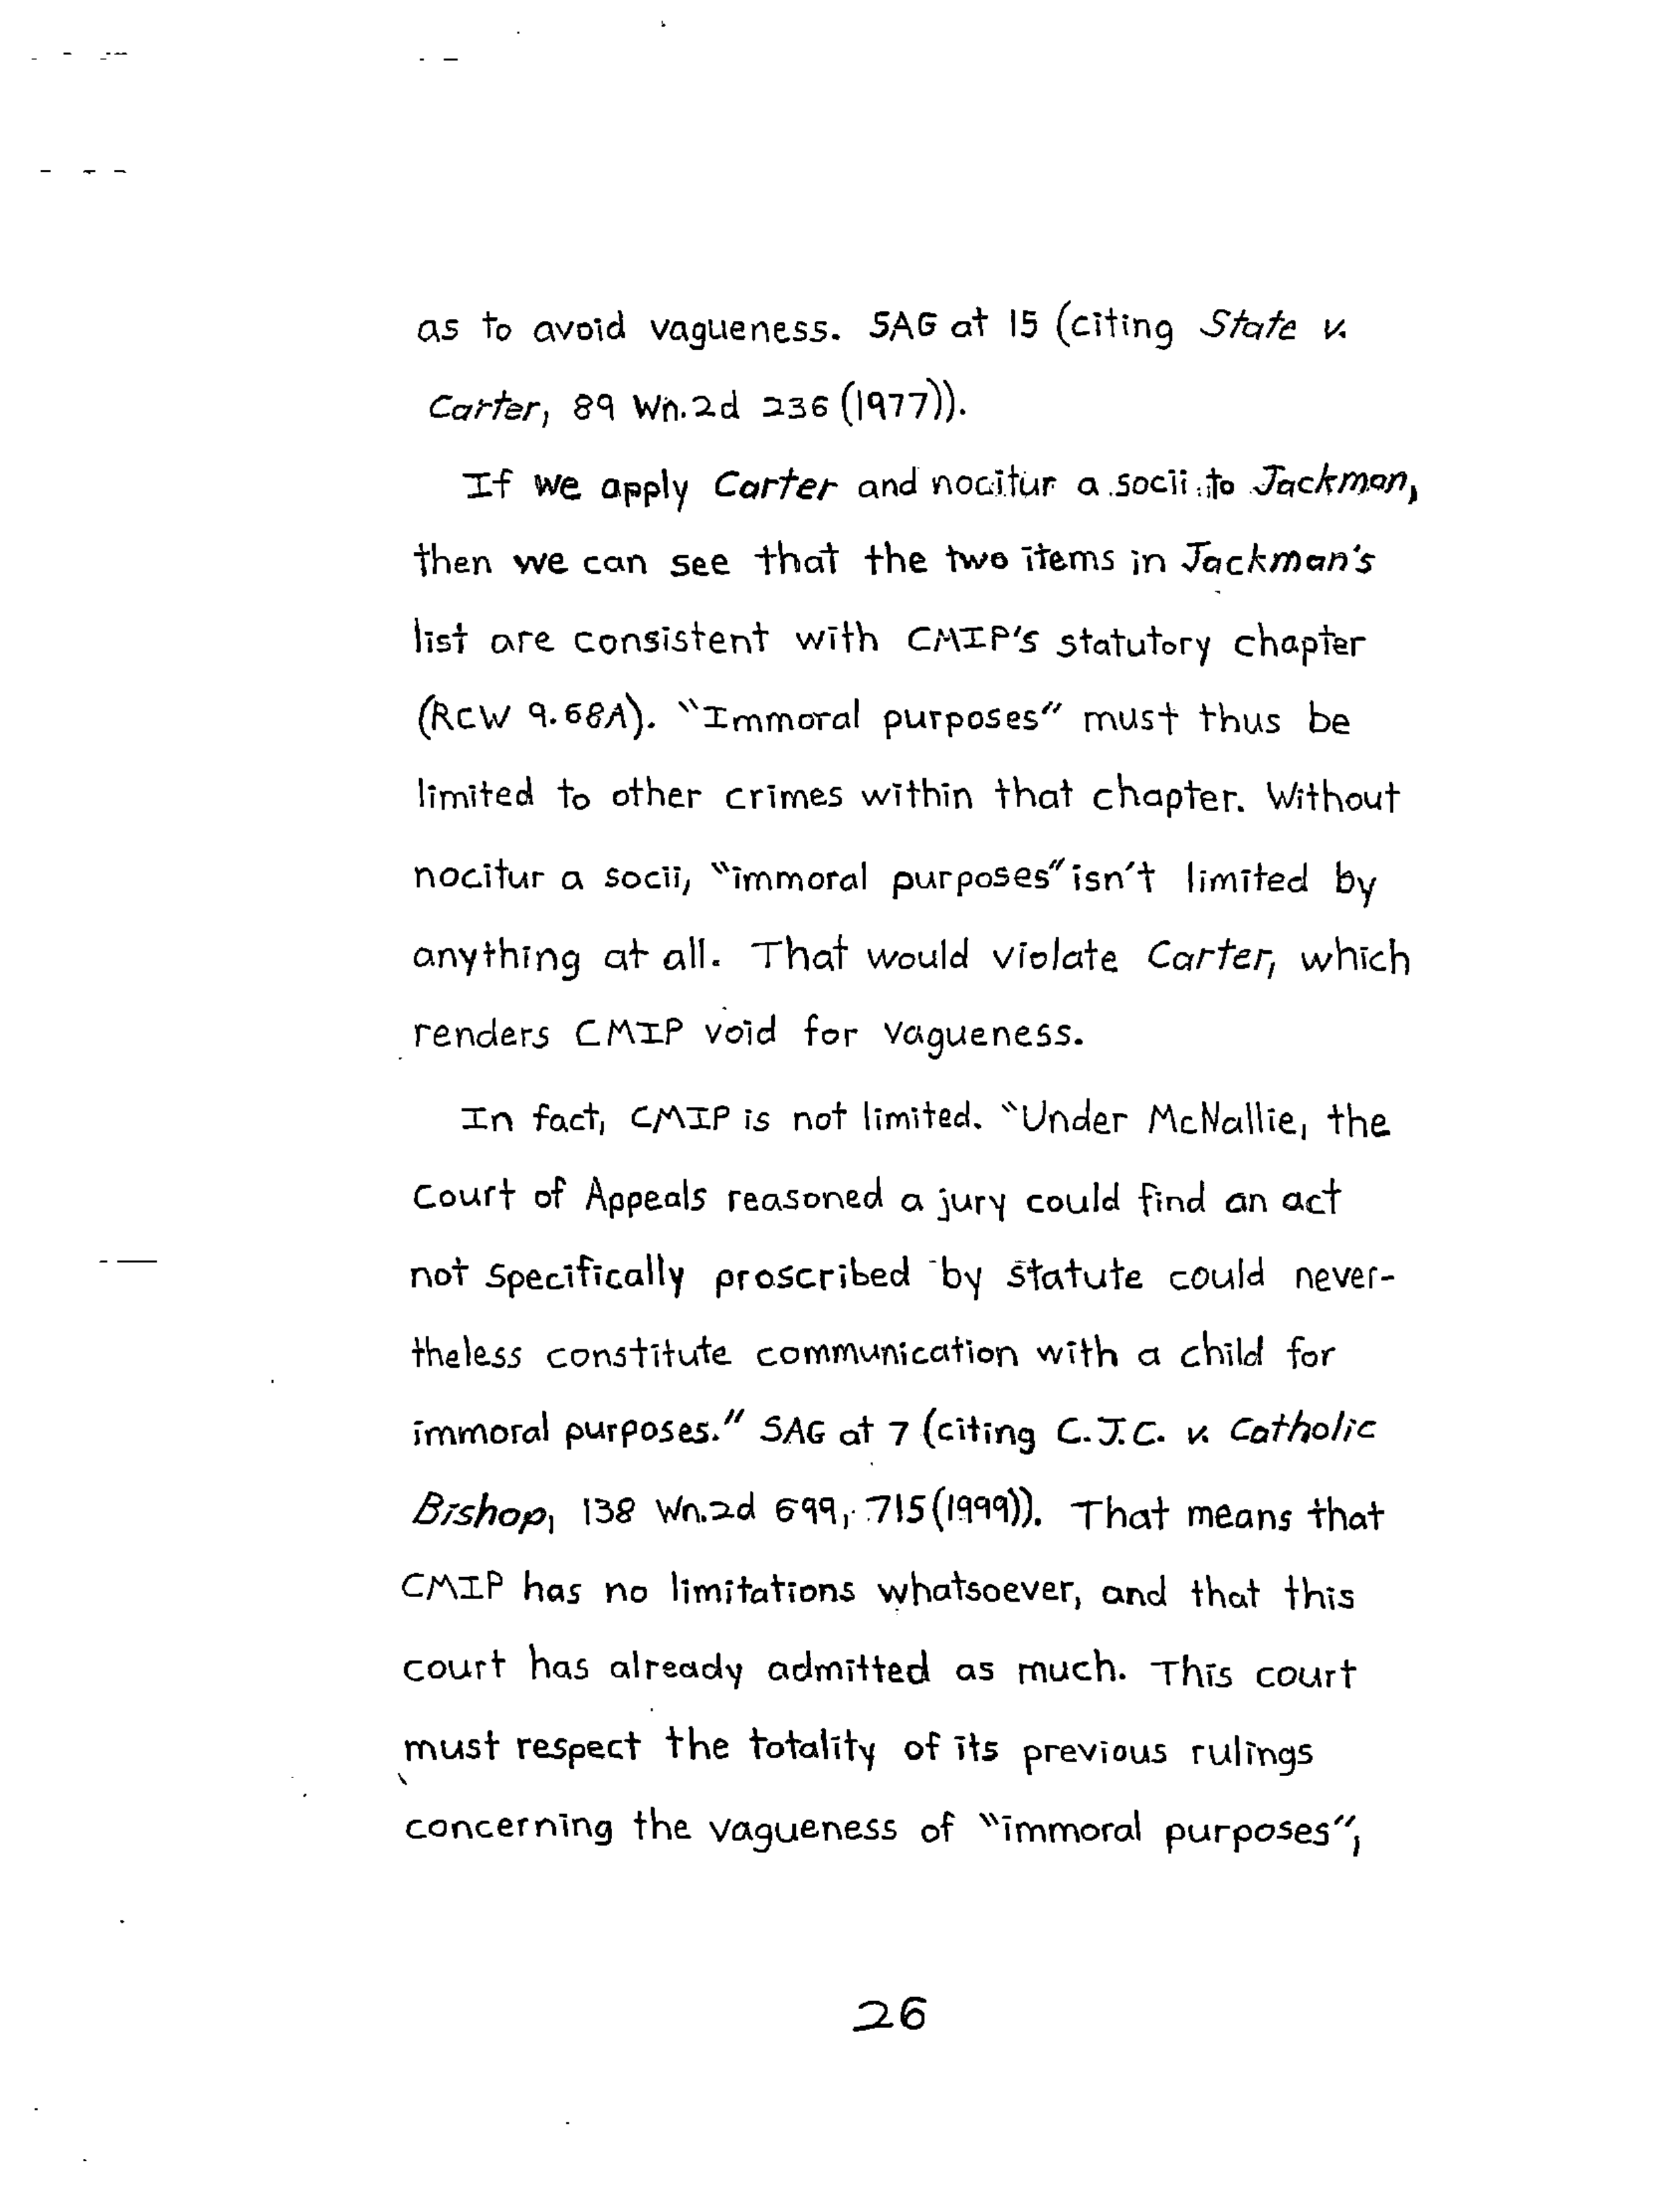 as to avoid vagueness. SAG at 15 (citing State v.
Carter, 89 Wn.2d 236 (1977)).
If we apply Carter and nocitur a socii to Jackman,
then we can see that the two items in Jackman's
list are consistent with CMIP's statutory chapter
(RCW 9.68A). "Immoral purposes" must thus be
limited to other crimes within that chapter. Without
nocitur a socii, "immoral purposes" isn't limited by
anything at all. That would violate Carter, which
renders CMIP void for vagueness.
In fact, CMIP is not limited. "Under McNallie, the
Court of Appeals reasoned a jury could find an act
not specifically proscribed by statute could never-
theless constitute communication with a child for
immoral purposes." SAG at 7 (citing C.J.C. v. Catholic
Bishop, 138 Wn.2d 699, 715 (1999)). That means that
CMIP has no limitations whatsoever, and that this
court has already admitted as much. This court
must respect the totality of its previous rulings
concerning the vagueness of "immoral purposes",
26